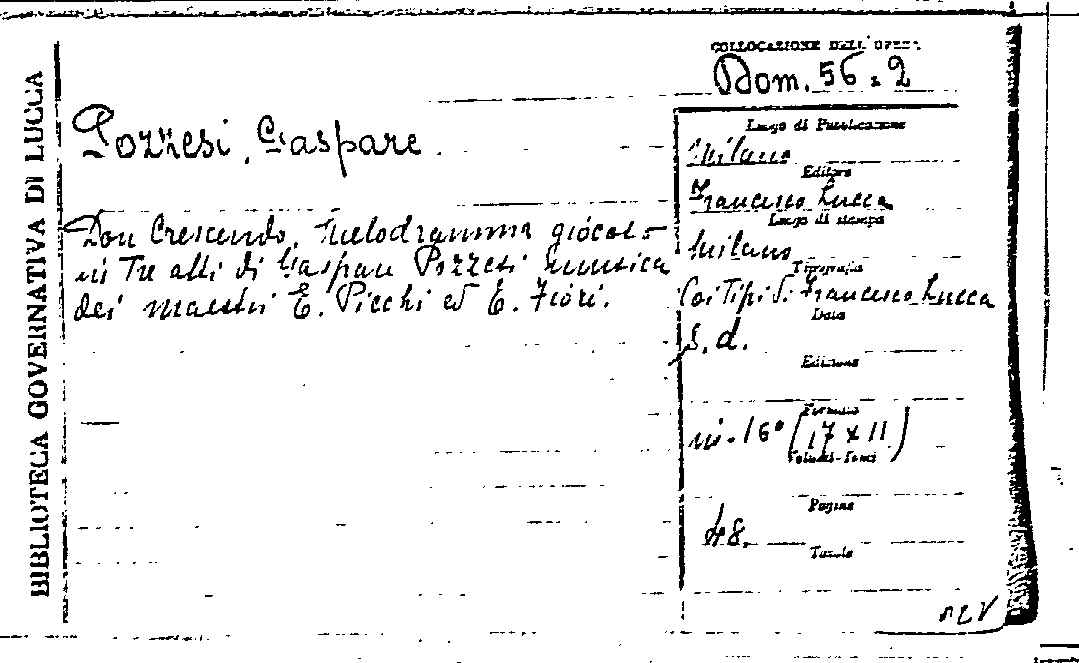 BIBLIOTECA GOVERNATIVA DI LUCCA
COLLOCAZIONE DELL'OPERA
Dom. 56.2
Pozzesi, Gaspare
Don Crescendo, melodramma giocoso
in Tre atti di Gaspare Pozzesi musica
dei maestri E. Picchi ed E. Fiori.
Luogo di Pubblicazione
Milano
Editore
Francesco Lucca
Luogo di stampa
Milano
Tipografia
Coi Tipi di Francesco Lucca
Data
s. d.
Edizione
Formato
in-16° (17 x 11)
Volumi-Tomi
Pagine
48.
Tavole